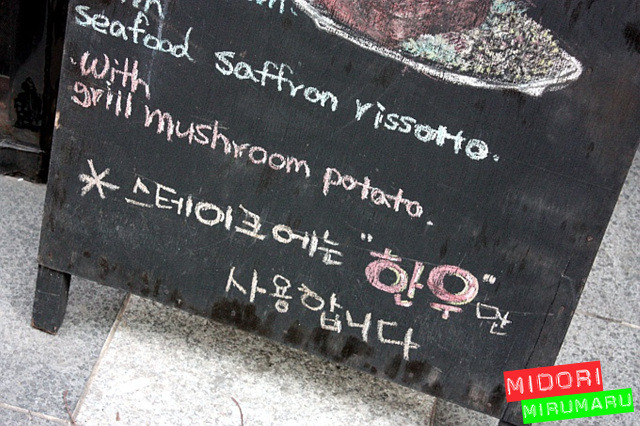 seafood saffron rissotto.
with
grill mushroom potata.
* 스테이크에는 "한우"만
사용합니다
MIDORI
MIRUMARU